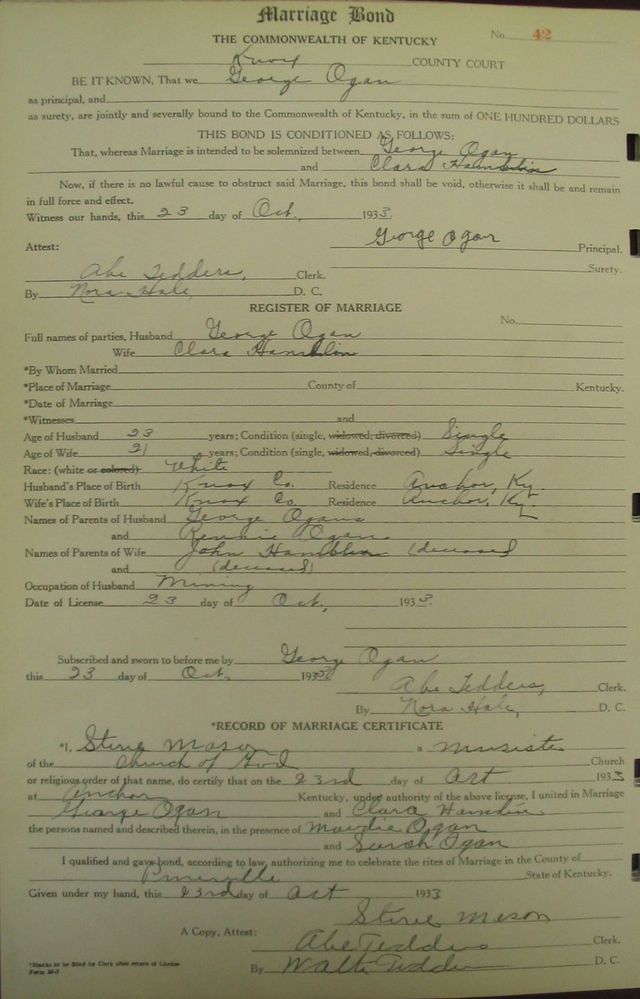 Marriage Bond
No. 42
THE COMMONWEALTH OF KENTUCKY
Knox COUNTY COURT
BE IT KNOWN, That we George Ogan
as principal, and
as surety, are jointly and severally bound to the Commonwealth of Kentucky, in the sum of ONE HUNDRED DOLLARS
THIS BOND IS CONDITIONED AS FOLLOWS:
That, whereas Marriage is intended to be solemnized between George Ogan
and Clara Hamblin
Now, if there is no lawful cause to obstruct said Marriage, this bond shall be void, otherwise it shall be and remain
in full force and effect.
Witness our hands, this 23 day of Oct, 1933.
George Ogan Principal.
Attest:
Surety.
Abe Tedders, Clerk.
By Nora Hale, D. C.
REGISTER OF MARRIAGE
No.
Full names of parties, Husband George Ogan
Wife Clara Hamblin
*By Whom Married
*Place of Marriage County of Kentucky.
*Date of Marriage
*Witnesses and
Age of Husband 23 years; Condition (single, widowed, divorced) Single
Age of Wife 21 years; Condition (single, widowed, divorced) Single
Race: (white or colored) White
Husband's Place of Birth Knox Co. Residence Anchor, Ky.
Wife's Place of Birth Knox Co Residence Anchor, Ky.
Names of Parents of Husband George Ogans
and Rennie Ogan
Names of Parents of Wife John Hamblin (deceased
and (deceased)
Occupation of Husband Mining
Date of License 23 day of Oct, 1933.
Subscribed and sworn to before me by George Ogan
this 23 day of Oct, 1933
Abe Tedders, Clerk.
By Nora Hale, D. C.
*RECORD OF MARRIAGE CERTIFICATE
*I, Steve Mason a
of the Church of God Church
or religious order of that name, do certify that on the 23rd day of Oct 1933
at Anchor Kentucky, under authority of the above license, I united in Marriage
George Ogan and Clara Hamlin
the persons named and described therein, in the presence of Ogan
and Sarah Ogan
I qualified and gave bond, according to law, authorizing me to celebrate the rites of Marriage in the County of
Pineville State of Kentucky.
Given under my hand, this 23rd day of Oct 1933
Steve Mason
A Copy, Attest: Abe Tedders Clerk.
*Blanks to be filled by Clerk after return of License
Form M-7
By Walter Tedders D. C.